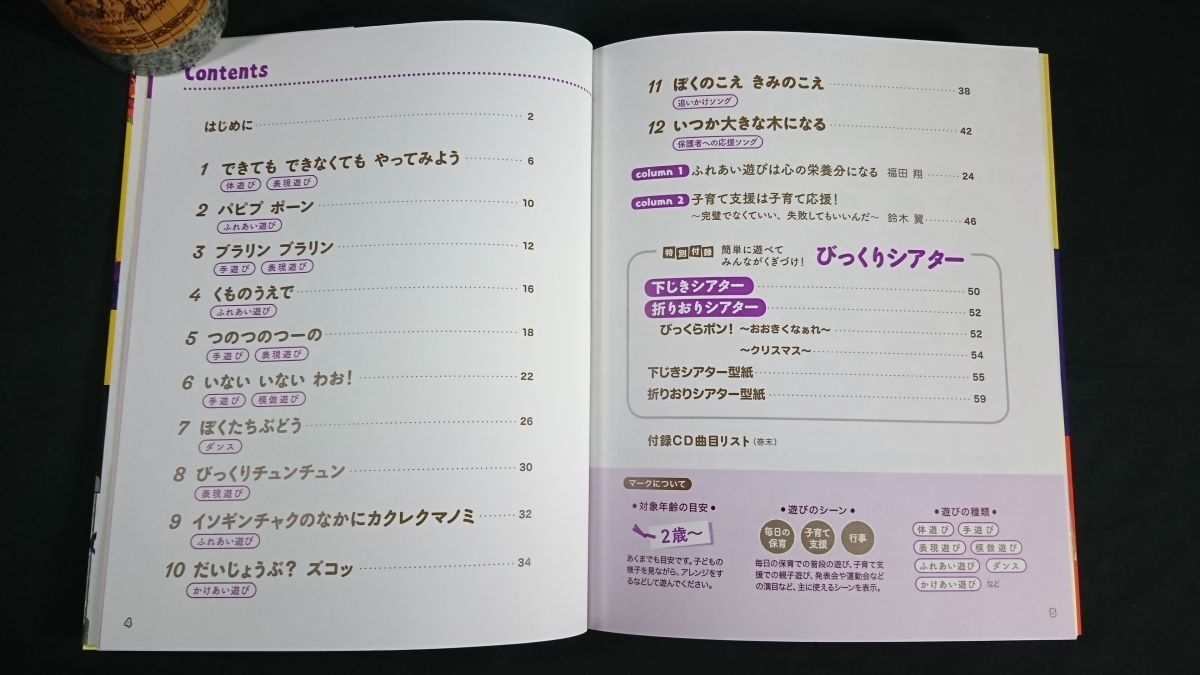 Contents
はじめに 2
1 できても できなくても やってみよう 6
体遊び 表現遊び
2 パピプ ポーン 10
ふれあい遊び
3 ブラリン ブラリン 12
手遊び 表現遊び
4 くものうえで 16
ふれあい遊び
5 つのつのつーの 18
手遊び 表現遊び
6 いない いない わお! 22
手遊び 模倣遊び
7 ぼくたちぶどう 26
ダンス
8 びっくりチュンチュン 30
表現遊び
9 イソギンチャクのなかにカクレクマノミ 32
ふれあい遊び
10 だいじょうぶ? ズコッ 34
かけあい遊び
4
11 ぼくのこえ きみのこえ 38
追いかけソング
12 いつか大きな木になる 42
保護者への応援ソング
column 1 ふれあい遊びは心の栄養分になる 福田 翔 24
column 2 子育て支援は子育て応援!
～完璧でなくていい、失敗してもいいんだ～ 鈴木 翼 46
特別付録 簡単に遊べて
みんながくぎづけ! びっくりシアター
下じきシアター 50
折りおりシアター 52
びっくらポン! ～おおきくなぁれ～ 52
～クリスマス～ 54
下じきシアター型紙 55
折りおりシアター型紙 59
付録CD曲目リスト(巻末)
マークについて
●対象年齢の目安●
2歳～
あくまでも目安です。子どもの
様子を見ながら、アレンジをす
るなどして遊んでください。
●遊びのシーン●
毎日の保育 子育て支援 行事
毎日の保育での普段の遊び、子育て支
援での親子遊び、発表会や運動会など
の演目など、主に使えるシーンを表示。
●遊びの種類●
体遊び 手遊び
表現遊び 模倣遊び
ふれあい遊び ダンス
かけあい遊び など
5